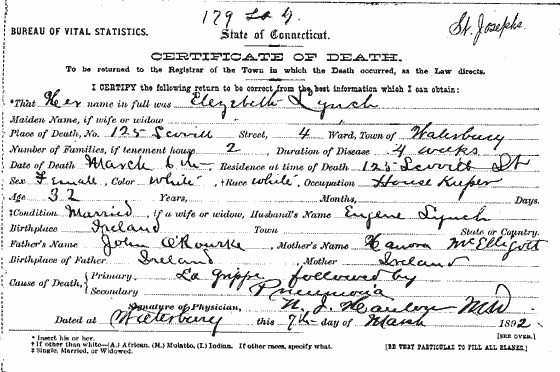 179
St. Josephs
BUREAU OF VITAL STATISTICS.
State of Connecticut.
CERTIFICATE OF DEATH.
To be returned to the Registrar of the Town in which the Death occurred, as the Law directs.
I CERTIFY the following return to be correct from the best information which I can obtain:
*That Her name in full was Elezebeth Lynch
Maiden Name, if wife or widow
Place of Death, No. 125 Scovill Street, 4 Ward, Town of Waterbury
Number of Families, if tenement house 2 Duration of Disease 4 weeks
Date of Death March 6th, Residence at time of Death 125 Scovill St
Sex Female, Color White, †Race White, Occupation House Keeper
Age 32 Years, Months, Days.
‡Condition Married, if a wife or widow, Husband's Name Eugene Lynch
Birthplace Ireland Town State or Country.
Father's Name John O'Rourke, Mother's Name Hanora McElligott
Birthplace of Father Ireland Mother Ireland
Cause of Death, { Primary La Grippe followed by
Secondary Pneumonia
Signature of Physician, N. J. Hanlon MD
Dated at Waterbury this 7th day of March 1892
[SEE OVER.]
* Insert his or her.
† If other than white—(A.) African. (M.) Mulatto, (I.) Indian. If other races, specify what.
‡ Single, Married, or Widowed.
[BE VERY PARTICULAR TO FILL ALL BLANKS.]